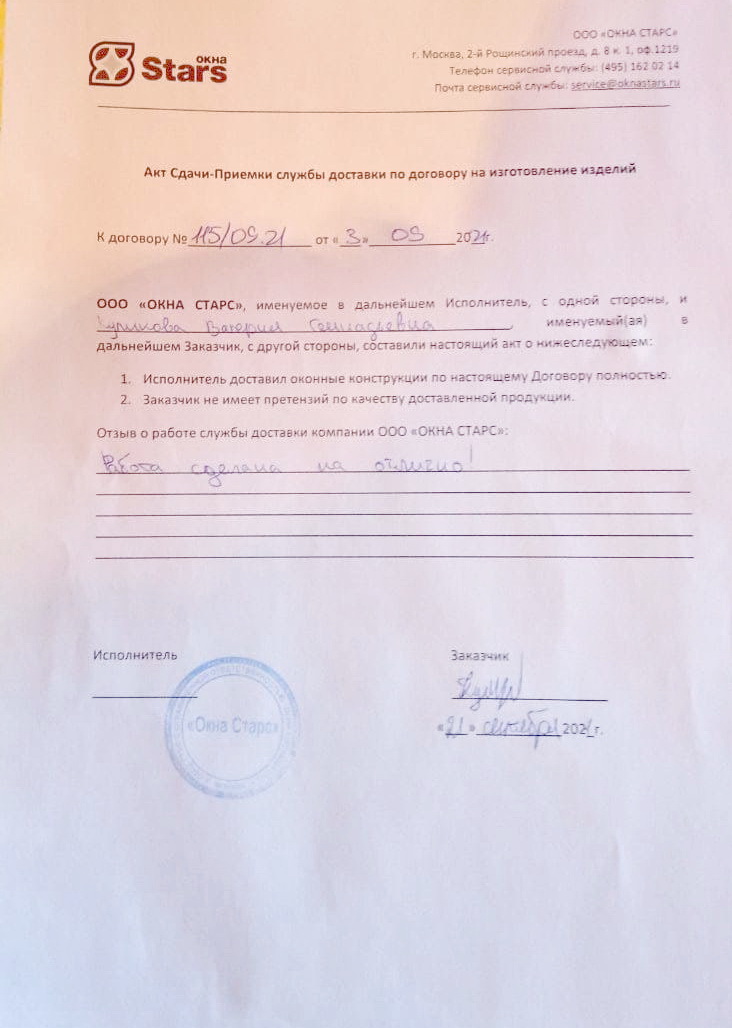 ОКНА
Stars
ООО «ОКНА СТАРС»
г. Москва, 2-й Рощинский проезд, д. 8 к. 1, оф.1219
Телефон сервисной службы: (495) 162 02 14
Почта сервисной службы: service@oknastars.ru
Акт Сдачи-Приемки службы доставки по договору на изготовление изделий
К договору № 115/09.21 от « 3 » 09 2021г.
ООО «ОКНА СТАРС», именуемое в дальнейшем Исполнитель, с одной стороны, и
Валерия Геннадьевна, именуемый(ая) в
дальнейшем Заказчик, с другой стороны, составили настоящий акт о нижеследующем:
1. Исполнитель доставил оконные конструкции по настоящему Договору полностью.
2. Заказчик не имеет претензий по качеству доставленной продукции.
Отзыв о работе службы доставки компании ООО «ОКНА СТАРС»:
Работа сделана на отлично!
Исполнитель
Заказчик
«Окна Старс»
«21» сентября 2021г.